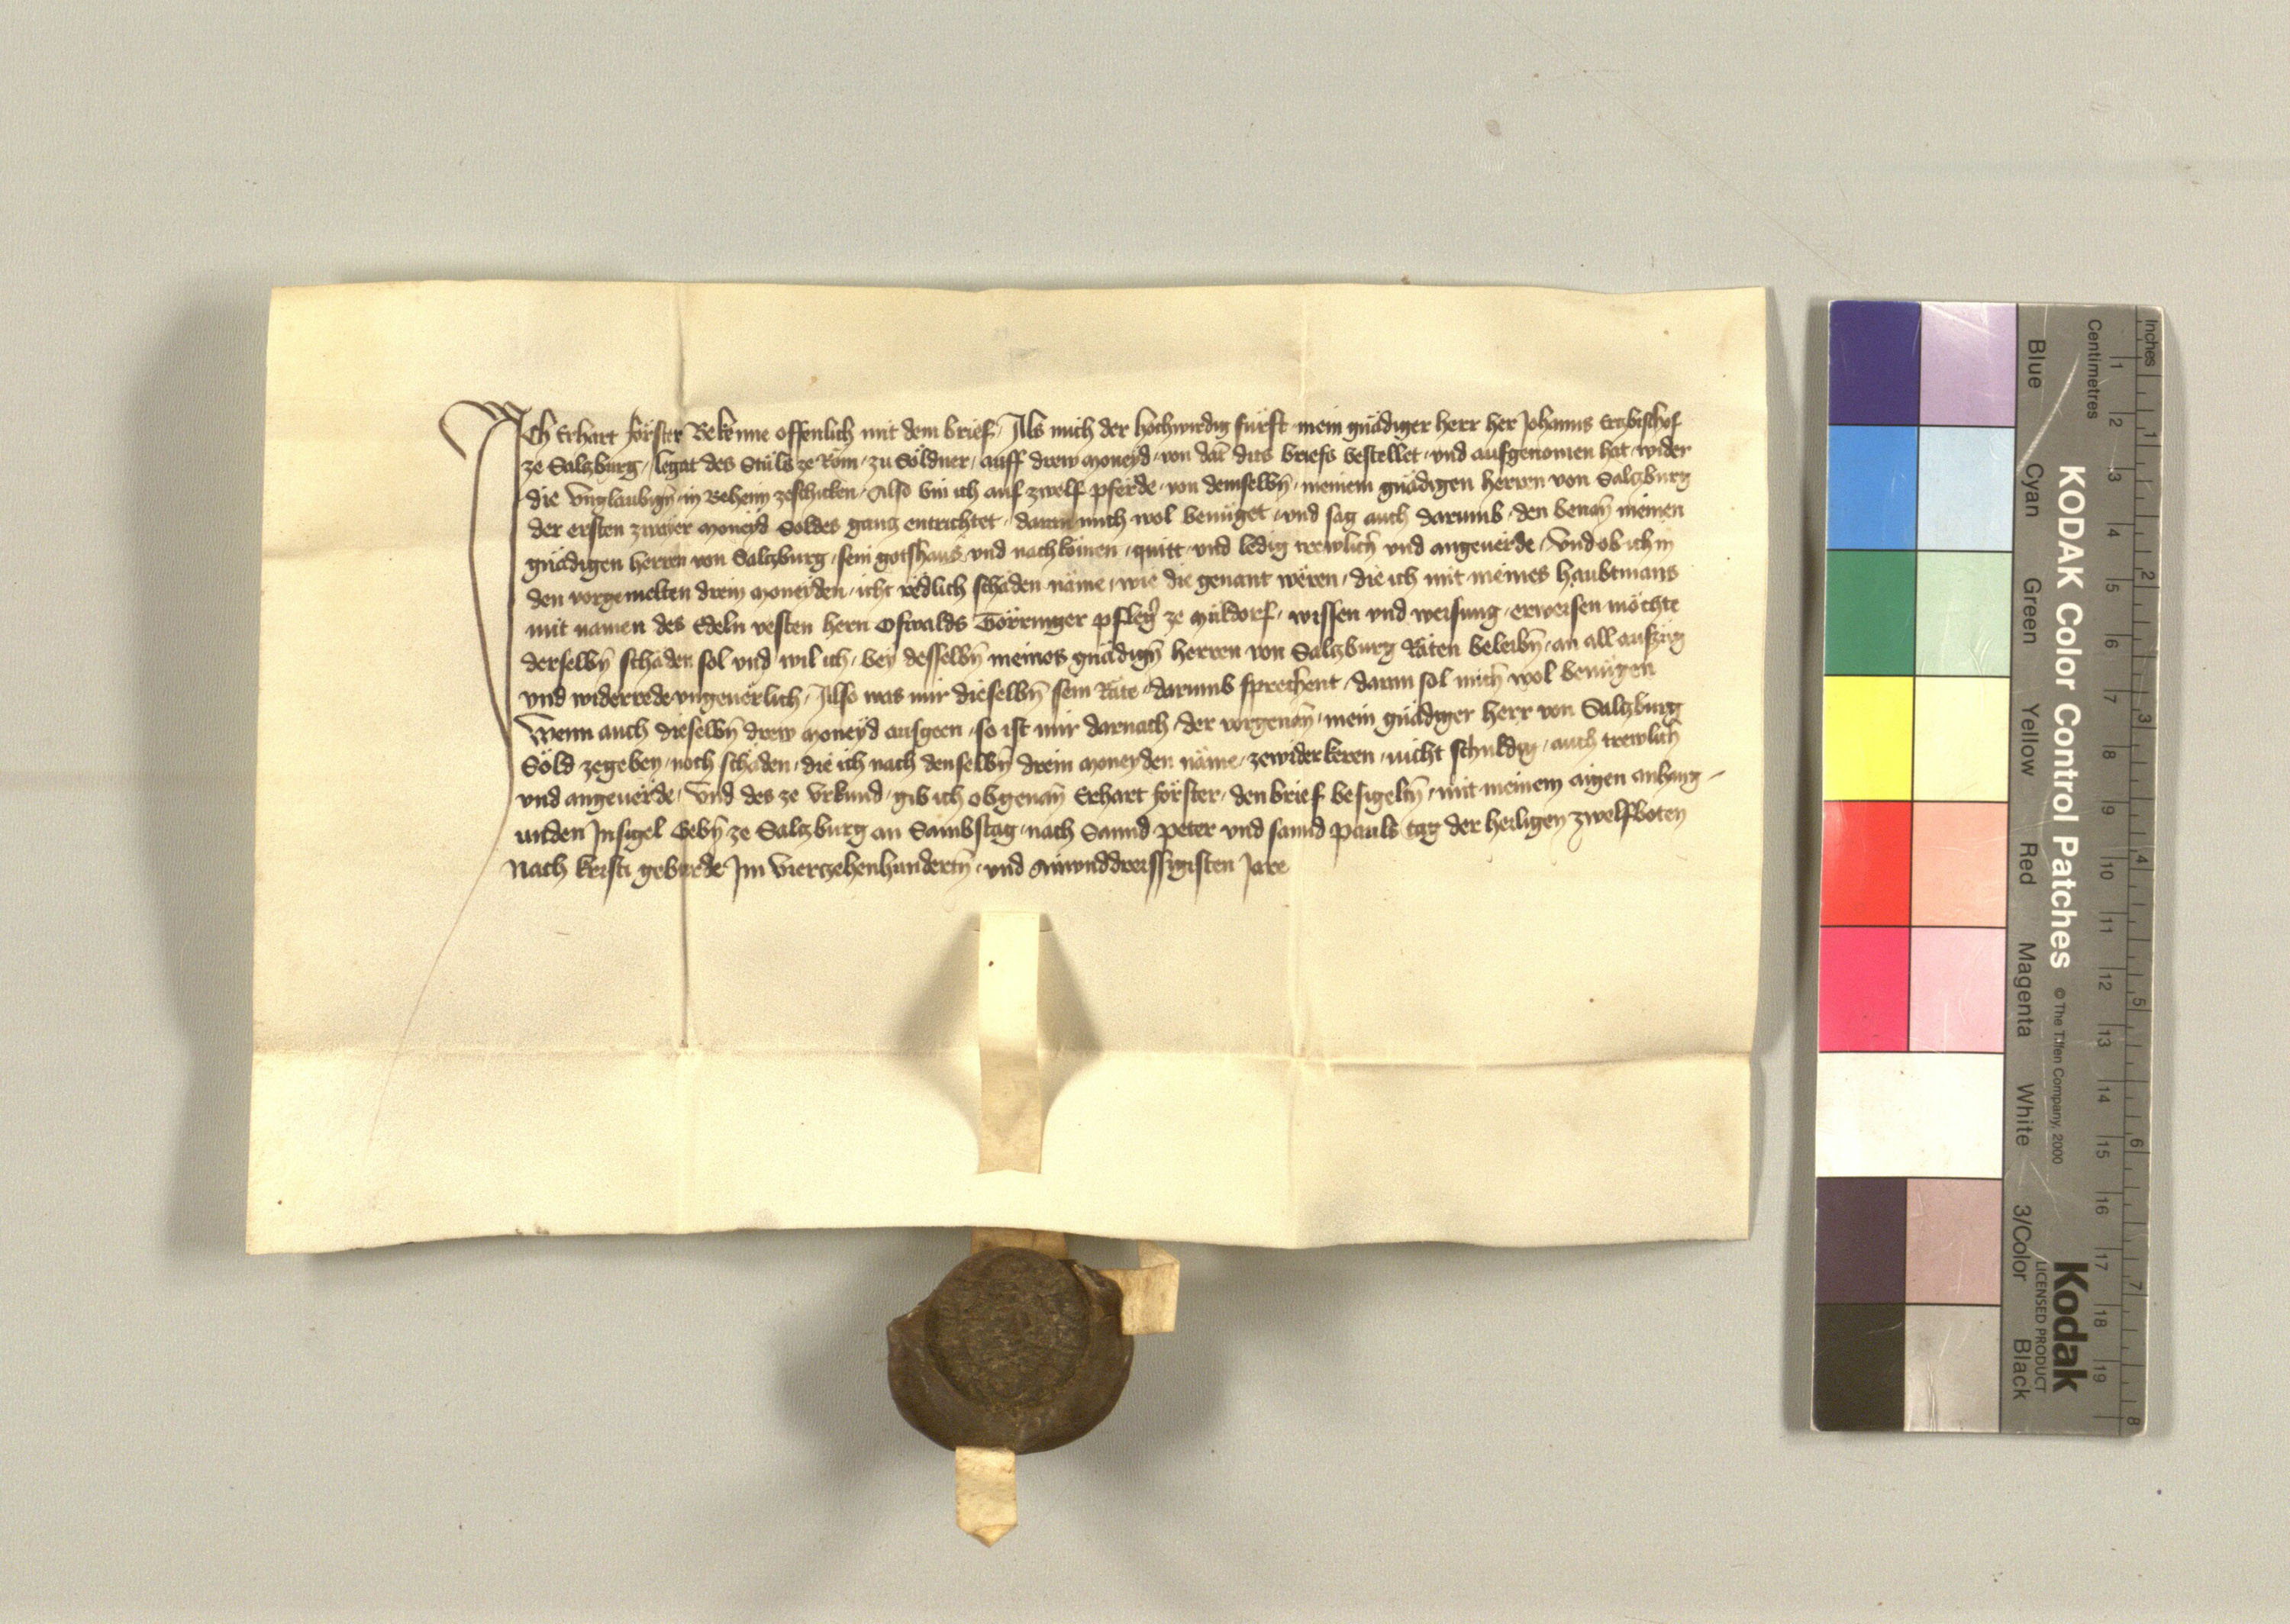 Ich Erhart Förster Bekenne offenlich mit dem brief, Als mich der hochwirdig fürst mein gnädiger herr her Johanns Ertzbischof
ze Saltzburg, legat des Stůls ze Rom, zu Söldner, auff drew moneyd, von dat̄ diss briefs bestellet, und aufgenomen hat, wider
die Unglaubign̄ in Beheim zeschicken, Also bin ich auf zwelf pferde, von demselbn̄, meinem gnädigen herren von Saltzburg
der ersten zwaier moneyd Soldes gantz entrichtet, daran mich wol benüget, und sag auch darumb, den benan̄ meinen
gnädigen herren von Saltzburg, sein gotshaus, und nachkomen, quitt, und ledig trewlich und angeuerde, Und ob ich in
den vorgemelten drein moneyden, icht redlich schäden näme, wie die genant wëren, die ich mit meines haubtmans
mit namen des Edeln vesten hern Oswalds Törringer pfleg̉ ze Müldorf, wissen und weisung, erweisen möchte
derselbn̄ schäden sol und wil ich, bey desselbn̄ meines gnädign̄ herren von Saltzburg Räten beleibn̄, an all auszüg
und widerrede ungeuerlich, Also was mir dieselbn̄ sein Räte, darumb sprechent, daran sol mich wol benügen
Wenn auch dieselbn̄ drew moneyd ausgeen, so ist mir darnach, der vorgenan̄, mein gnädiger herr von Saltzburg
Söld zegeben, noch schäden, die ich nach denselbn̄ drein moneyden näme, zewiderkeren, nicht schuldig, auch trewlich
und angeuerde, Und des ze Urkund, gib ich obgenan̄ Erhart Förster, den brief besigeltn̄, mit meinem aigen anhang-
unden Insigel Gebn̄ ze Saltzburg an Sambstag, nach Sannd Peter und sannd Pauls tag der heiligen zwelfboten
Nach kristi geburde Im Viertzehenhundertn̄, und Ainunddreissigisten Jare
KODAK Color Control Patches
© The Tiffen Company, 2000
Kodak
LICENSED PRODUCT
Blue Cyan Green Yellow Red Magenta White 3/Color Black
Inches
1 2 3 4 5 6 7 8
Centimetres
1 2 3 4 5 6 7 8 9 10 11 12 13 14 15 16 17 18 19